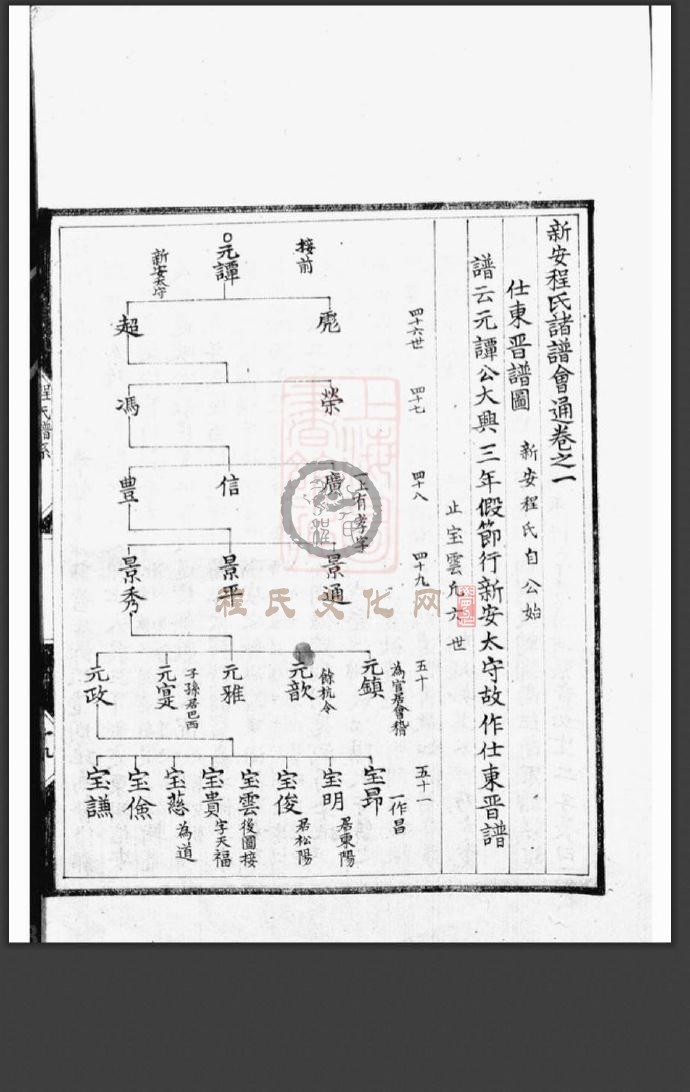 新安程氏諸譜會通卷之一
仕東晋譜圖 新安程氏自公始
譜云元譚公大興三年假節行新安太守故作仕東晋譜
止宝雲凢六世
四十六世 四十七 四十八 四十九 五十 五十一
接前
元譚 新安太守
虎 超
榮 馮
廣 一上有孝字 信 豊
景通 景平 景秀
元鎮 為官居會稽 元歆 餘杭令 元雅 元寔 子孫居巴西 元政
宝昂 一作昌 宝明 居東陽 宝俊 居松陽 宝雲 後圖接 宝貴 字天福 宝慈 為道 宝儉 宝謙
程氏譜系
十九
程氏文化网